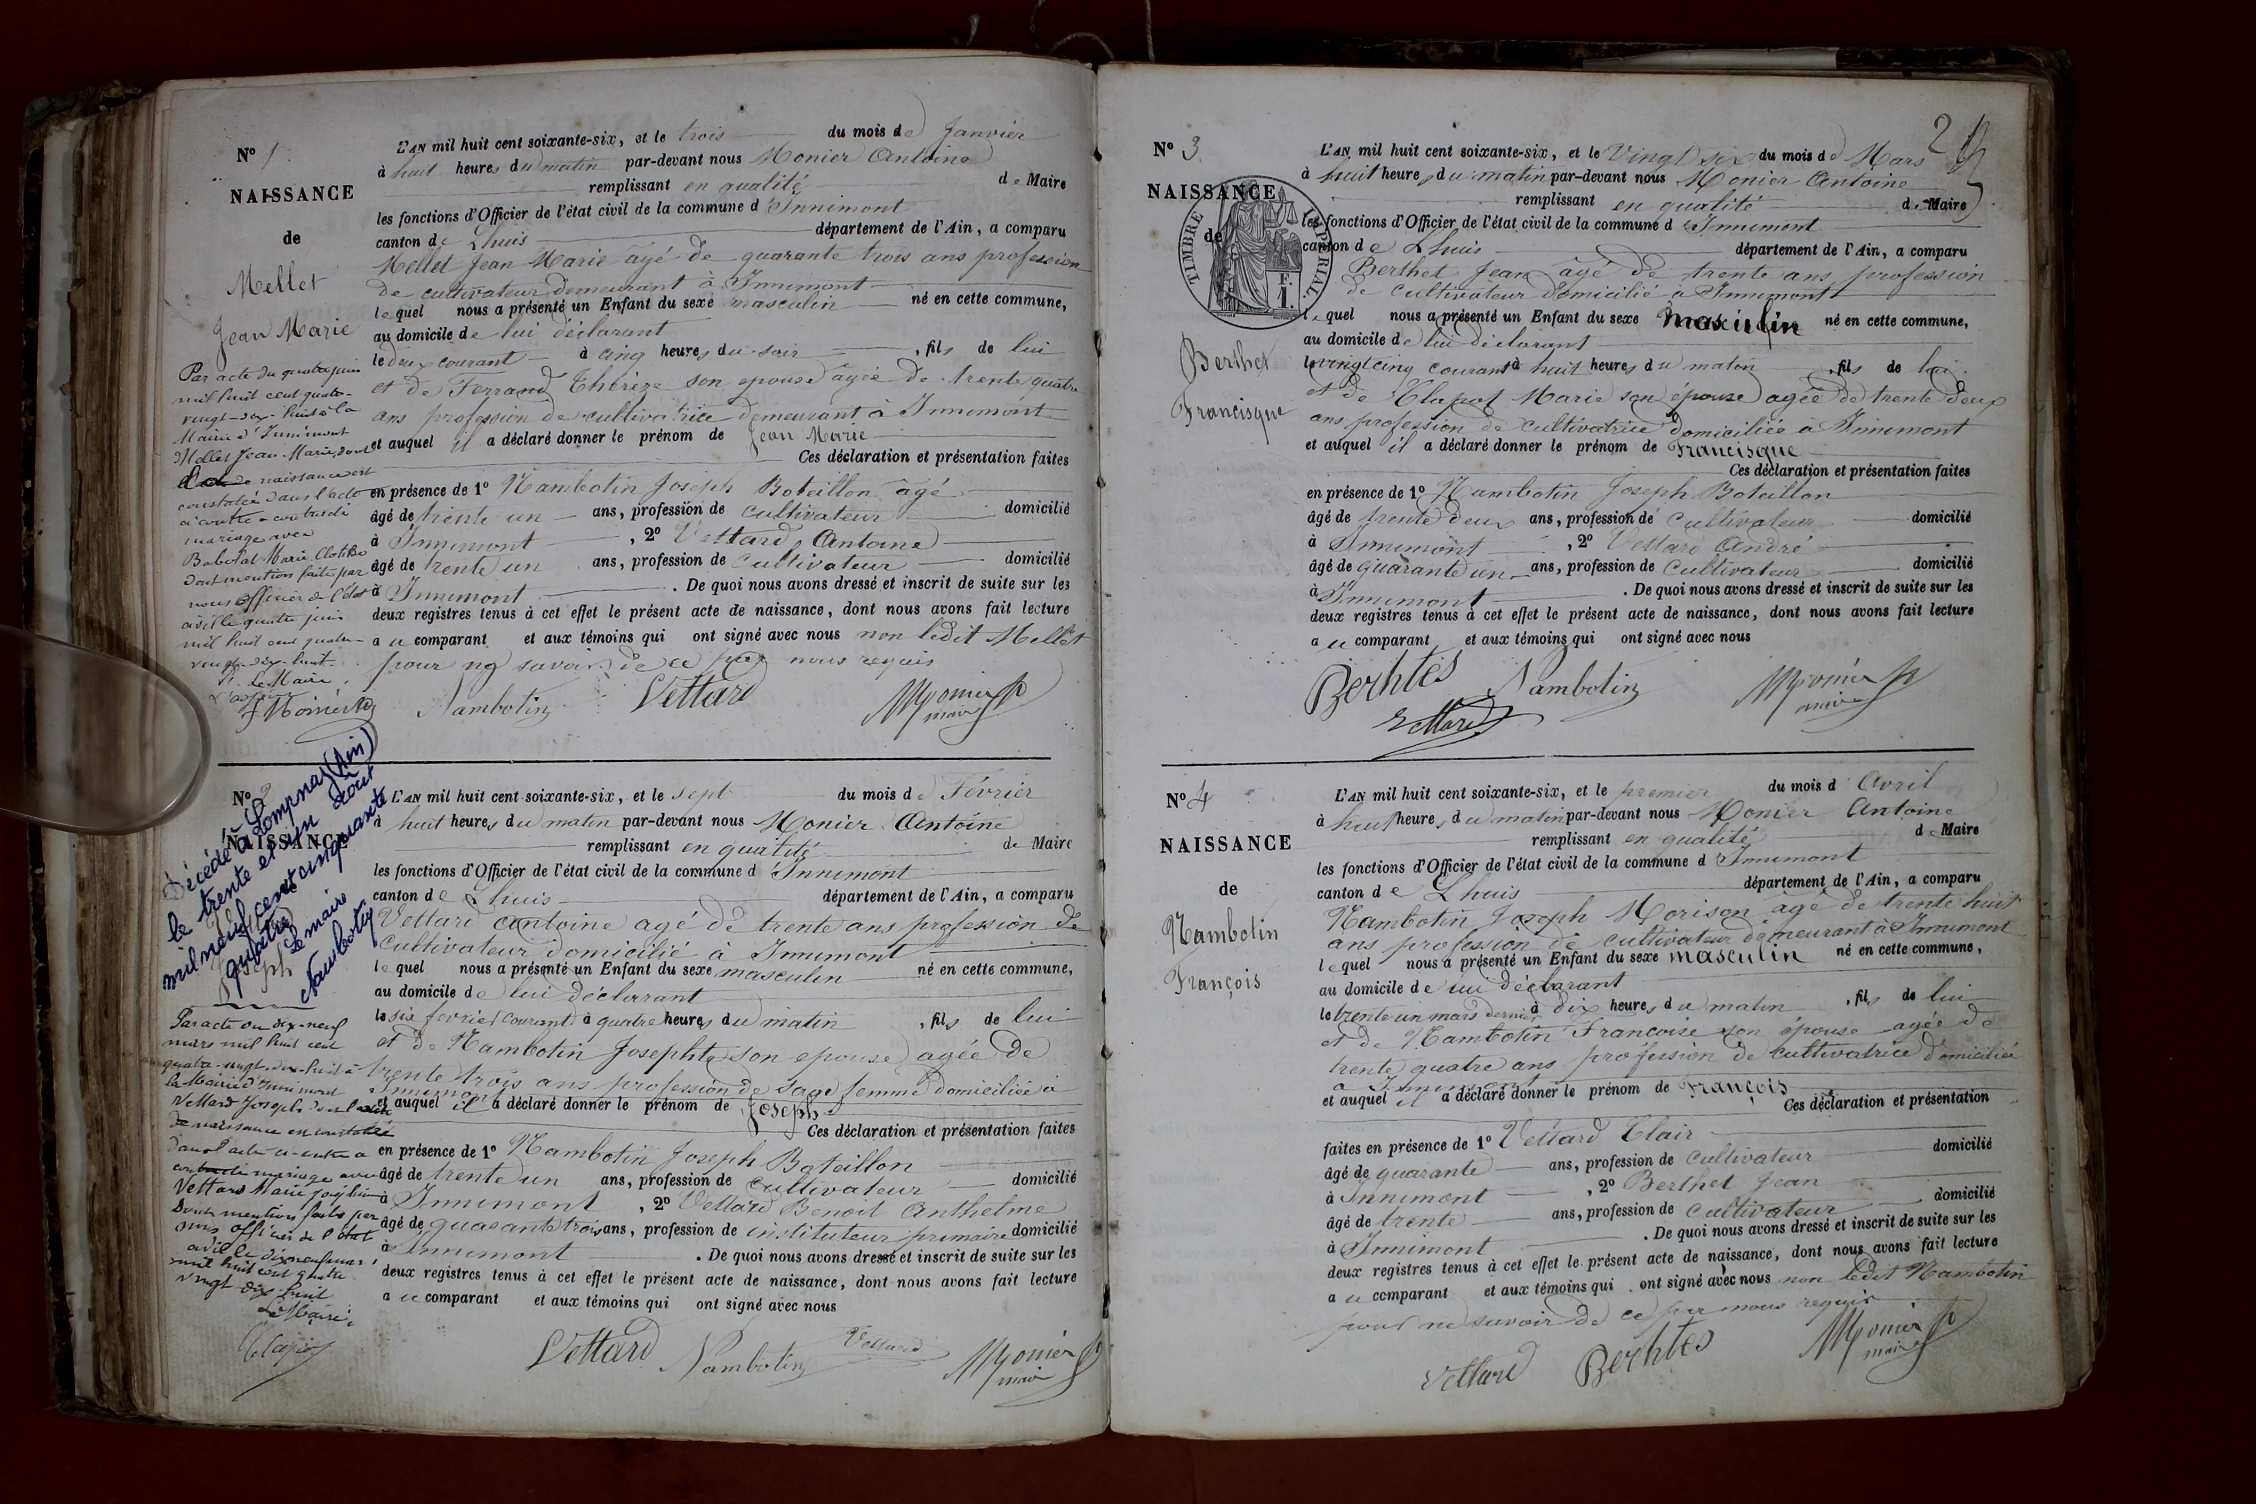 N° 1
NAISSANCE
de
Mellet
Jean Marie
Par acte du quatre juin
mil huit cent quatre-
vingt-dix-huit à la
Mairie d'Innimont
Mellet Jean-Marie, dont
l'acte de naissance est
constatée dans l'acte
ci contre a contracté
mariage avec
Babolat Marie Clotilde
dont mention faite par
nous Officier de l'état
civil le quatre juin
mil huit cent quatre-
vingt-dix-huit.
Le Maire,
L'AN mil huit cent soixante-six, et le trois du mois de Janvier
à huit heures du matin par-devant nous Monier Antoine
remplissant en qualité de Maire
les fonctions d'Officier de l'état civil de la commune d'Innimont
canton de Lhuis département de l'Ain, a comparu
Mellet Jean Marie âgé de quarante trois ans profession
de cultivateur demeurant à Innimont
lequel nous a présenté un Enfant du sexe masculin né en cette commune,
au domicile de lui déclarant
le deux courant à cinq heures du soir, fils de lui
et de Ferrand Thérèze son epouse âgée de trente quatre
ans profession de cultivatrice demeurant à Innimont
et auquel il a déclaré donner le prénom de Jean Marie
Ces déclaration et présentation faites
en présence de 1° Nambotin Joseph Boteillon âgé
âgé de trente un ans, profession de cultivateur domicilié
à Innimont, 2° Vettard Antoine
âgé de trente un ans, profession de cultivateur domicilié
à Innimont. De quoi nous avons dressé et inscrit de suite sur les
deux registres tenus à cet effet le présent acte de naissance, dont nous avons fait lecture
au comparant et aux témoins qui ont signé avec nous non ledit Mellet
pour ne savoir de ce par nous requis
Nambotin Vettard Monier
maire
N° 2
NAISSANCE
Joseph
Décédé à Lompnas (Ain)
le trente et un août
mil neuf cent cinquante
quatre
Le maire
Nambotin
Par acte du dix-neuf
mars mil huit cent
quatre-vingt-dix-huit à
la Mairie d'Innimont
Vettard Joseph dont l'acte
de naissance est constatée
dans l'acte ci-contre a
contracté mariage avec
Vettard Marie Joséphine
Dont mention faite par
nous officier de l'état
civil le dix neuf mars
mil huit cent quatre
vingt dix huit
Le Maire,
L'AN mil huit cent soixante-six, et le sept du mois de Février
à huit heures du matin par-devant nous Monier Antoine
remplissant en qualité de Maire
les fonctions d'Officier de l'état civil de la commune d'Innimont
canton de Lhuis département de l'Ain, a comparu
Vettard Antoine agé de trente ans profession de
cultivateur domicilié à Innimont
lequel nous a présenté un Enfant du sexe masculin né en cette commune,
au domicile de lui déclarant
le six février courant à quatre heures du matin, fils de lui
et de Nambotin Josephte son epouse agée de
trente trois ans profession de sage femme domiciliée à
Innimont
et auquel il a déclaré donner le prénom de Joseph
Ces déclaration et présentation faites
en présence de 1° Nambotin Joseph Boteillon
âgé de trente un ans, profession de cultivateur domicilié
à Innimont, 2° Vettard Benoit Anthelme
âgé de quarante trois ans, profession de instituteur primaire domicilié
à Innimont. De quoi nous avons dressé et inscrit de suite sur les
deux registres tenus à cet effet le présent acte de naissance, dont nous avons fait lecture
au comparant et aux témoins qui ont signé avec nous
Vettard Nambotin Vettard Monier
maire
2
N° 3
NAISSANCE
de
TIMBRE IMPÉRIAL
F.
1.
Berthet
Francisque
L'AN mil huit cent soixante-six, et le Vingt six du mois de Mars
à huit heures du matin par-devant nous Monier Antoine
remplissant en qualité de Maire
les fonctions d'Officier de l'état civil de la commune d'Innimont
canton de Lhuis département de l'Ain, a comparu
Berthet Jean âgé de trente ans profession
de cultivateur domicilié à Innimont
lequel nous a présenté un Enfant du sexe masculin né en cette commune,
au domicile de lui déclarant
le vingt cinq courant à huit heures du matin, fils de lui
et de Clapot Marie son épouse agée de trente deux
ans profession de cultivatrice domiciliée à Innimont
et auquel il a déclaré donner le prénom de Francisque
Ces déclaration et présentation faites
en présence de 1° Nambotin Joseph Boteillon
âgé de trente deux ans, profession de cultivateur domicilié
à Innimont, 2° Vettard André
âgé de quarante un ans, profession de cultivateur domicilié
à Innimont. De quoi nous avons dressé et inscrit de suite sur les
deux registres tenus à cet effet le présent acte de naissance, dont nous avons fait lecture
au comparant et aux témoins qui ont signé avec nous
Berhtes Nambotin Monier
Vettard maire
N° 4
NAISSANCE
de
Nambotin
François
L'AN mil huit cent soixante-six, et le premier du mois d Avril
à huit heures du matin par-devant nous Monier Antoine
remplissant en qualité de Maire
les fonctions d'Officier de l'état civil de la commune d'Innimont
canton de Lhuis département de l'Ain, a comparu
Nambotin Joseph Morison âgé de trente huit
ans profession de cultivateur demeurant à Innimont
lequel nous a présenté un Enfant du sexe masculin né en cette commune,
au domicile de lui déclarant
le trente un mars dernier à dix heures du matin, fils de lui
et de Nambotin Francoise son épouse agée de
trente quatre ans profession de cultivatrice domiciliée
a Innimont
et auquel il a déclaré donner le prénom de François
Ces déclaration et présentation
faites en présence de 1° Vettard Clair
âgé de quarante ans, profession de cultivateur domicilié
à Innimont, 2° Berthet Jean
âgé de trente ans, profession de cultivateur domicilié
à Innimont. De quoi nous avons dressé et inscrit de suite sur les
deux registres tenus à cet effet le présent acte de naissance, dont nous avons fait lecture
au comparant et aux témoins qui ont signé avec nous non ledit Nambotin
pour ne savoir de ce par nous requis
Vettard Berhtes Monier
maire